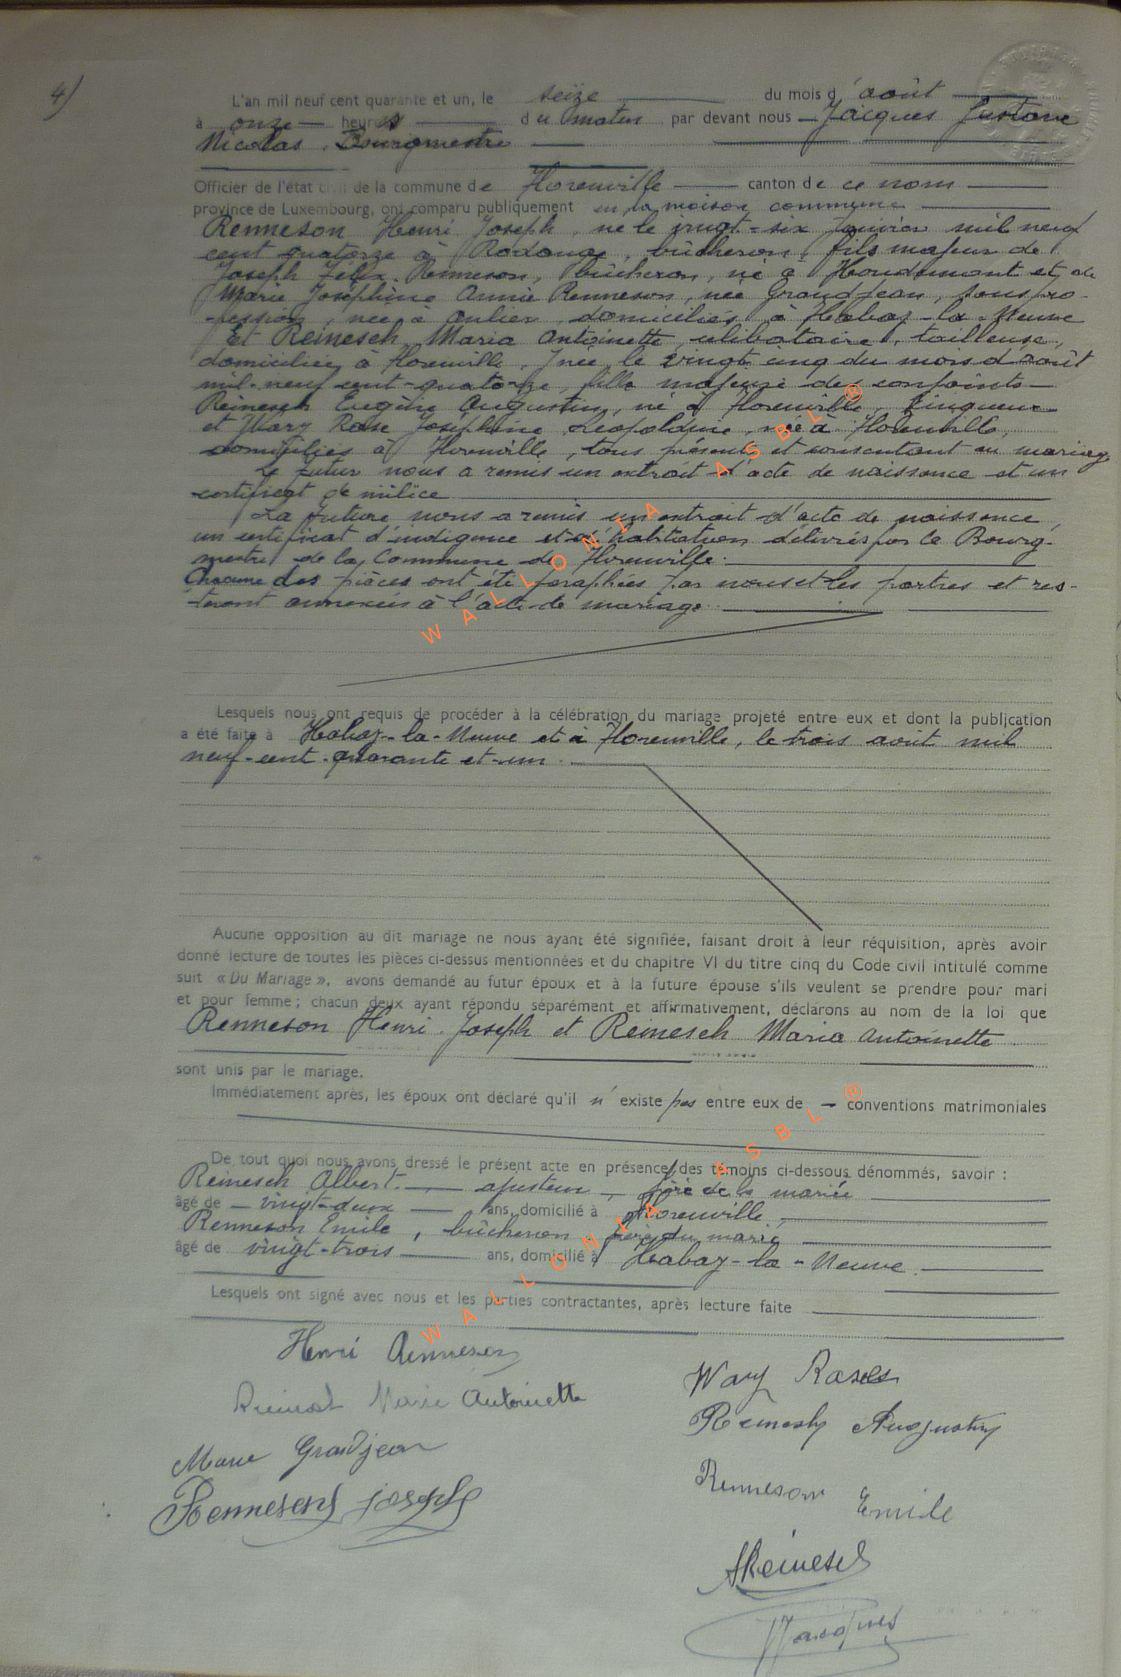 4)
L'an mil neuf cent quarante et un, le seize du mois d'août
à onze heures du matin par devant nous Jacques Gustave
Nicolas, Bourgmestre
Officier de l'état civil de la commune de Florenville canton de ce nom
province de Luxembourg, ont comparu publiquement en la maison commune
Renneson Henri Joseph, né le vingt-six janvier mil neuf
cent quatorze à , bûcheron, fils majeur de
Joseph Félix Renneson, bûcheron, né à Houdemont et de
Marie Joséphine Annie Renneson, née Grandjean, sans pro-
fession, née à Anlier, domiciliés à Habay-la-Neuve
Et Reinesch Maria Antoinette, célibataire, tailleuse,
domiciliée à Florenville, née le vingt cinq du mois d'août
mil-neuf cent-quatorze, fille majeure des conjoints
Reinesch Eugène Augustin, né à Florenville, zingueur
et Wary Rose Joséphine Léopoldine, née à Florenville,
domiciliés à Florenville, tous présents et consentant au mariage
Le futur nous a remis un extrait d'acte de naissance et un
certificat de milice
La future nous a remis un extrait d'acte de naissance,
un certificat d'indigence et d'habitation délivrés par le Bourg-
mestre de la Commune de Florenville.
Chacune des pièces ont été paraphées par nous et les parties et res-
teront annexées à l'acte de mariage.
Lesquels nous ont requis de procéder à la célébration du mariage projeté entre eux et dont la publication
a été faite à Habay-la-Neuve et à Florenville, le trois août mil
neuf-cent-quarante et-un.
Aucune opposition au dit mariage ne nous ayant été signifiée, faisant droit à leur réquisition, après avoir
donné lecture de toutes les pièces ci-dessus mentionnées et du chapitre VI du titre cinq du Code civil intitulé comme
suit « Du Mariage », avons demandé au futur époux et à la future épouse s'ils veulent se prendre pour mari
et pour femme ; chacun deux ayant répondu séparément et affirmativement, déclarons au nom de la loi que
Renneson Henri Joseph et Reinesch Maria Antoinette
sont unis par le mariage.
Immédiatement après, les époux ont déclaré qu'il n'existe pas entre eux de conventions matrimoniales
De tout quoi nous avons dressé le présent acte en présence des témoins ci-dessous dénommés, savoir :
Reinesch Albert ajusteur, frère de la mariée
âgé de vingt-deux ans, domicilié à Florenville,
Renneson Emile, bûcheron, frère du marié
âgé de vingt-trois ans, domicilié à Habay-la-Neuve.
Lesquels ont signé avec nous et les parties contractantes, après lecture faite
Henri Renneson
Marie Antoinette
Marie Grandjean
Renneson Joseph
Wary Rose
Reinesch Augustin
Renneson Emile
AReinesch
Jacques
WALLONIA ASBL ®
WALLONIA ASBL ®